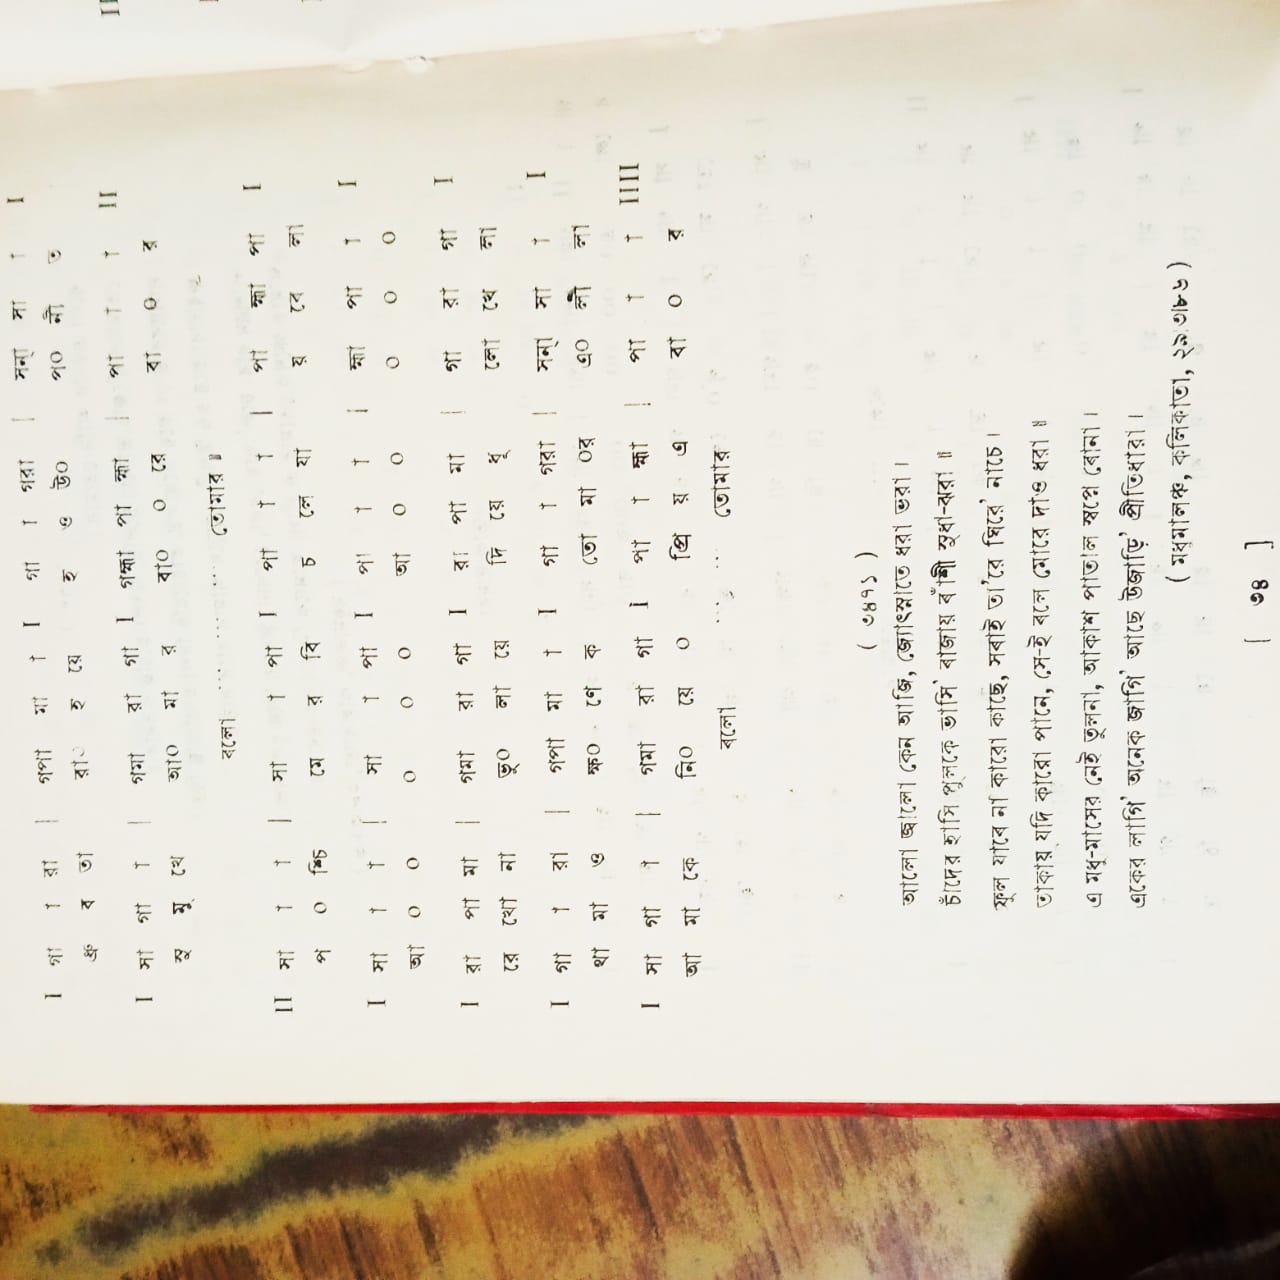 I গা া রা | গপা মা া I গা া গরা | সন্া সা া I
ধ্রু ব তা রা০ হ য়ে হ ও উ০ প০ নী ত
I সা গা া | গমা রা গা I গহ্মা পা হ্মা | পা া া II
সু মু খে আ০ মা র বা০ ০ রে বা ০ র
বলো...... তোমার ॥
II সা া া | সা া পা I পা া া | পা হ্মা পা I
প ০ শ্চি মে র বি চ লে যা য় বে লা
I সা া া | সা া পা I পা া া | হ্মা পা া I
আ ০ ০ ০ ০ ০ আ ০ ০ ০ ০ ০
I রা পা মা | গমা রা গা I রা পা মা | গা রা গা I
রে খো না ভু০ লা য়ে দি য়ে ধূ লো খে লা
I গা া রা | গপা মা া I গা া গরা | সন্া সা া I
থা মা ও ক্ষ০ ণে ক তো মা ০র এ০ লী লা
I সা গা া | গমা রা গা I পা া হ্মা | পা া া IIII
আ মা কে নি০ য়ে ০ প্রি য় এ বা ০ র
বলো ...... তোমার
( ৩৪৭১ )
আলো জ্বালো কেন আজি, জ্যোৎস্নাতে ধরা ভরা ।
চাঁদের হাসি পুলকে ভাসি' বাজায় বাঁশী সুধা-ঝরা ॥
ফুল যাবে না কারো কাছে, সবাই তা'রে ঘিরে' নাচে ।
তাকায় যদি কারো পানে, সে-ই বলে মোরে দাও ধরা ॥
এ মধু-মাসের নেই তুলনা, আকাশ পাতাল স্বপ্নে বোনা ।
একের লাগি' অনেক জাগি' আছে উজাড়ি' প্রীতিধারা ।
( মধুমালঞ্চ, কলিকাতা, ২৯।৩।৮৬ )
[ ৩৪ ]